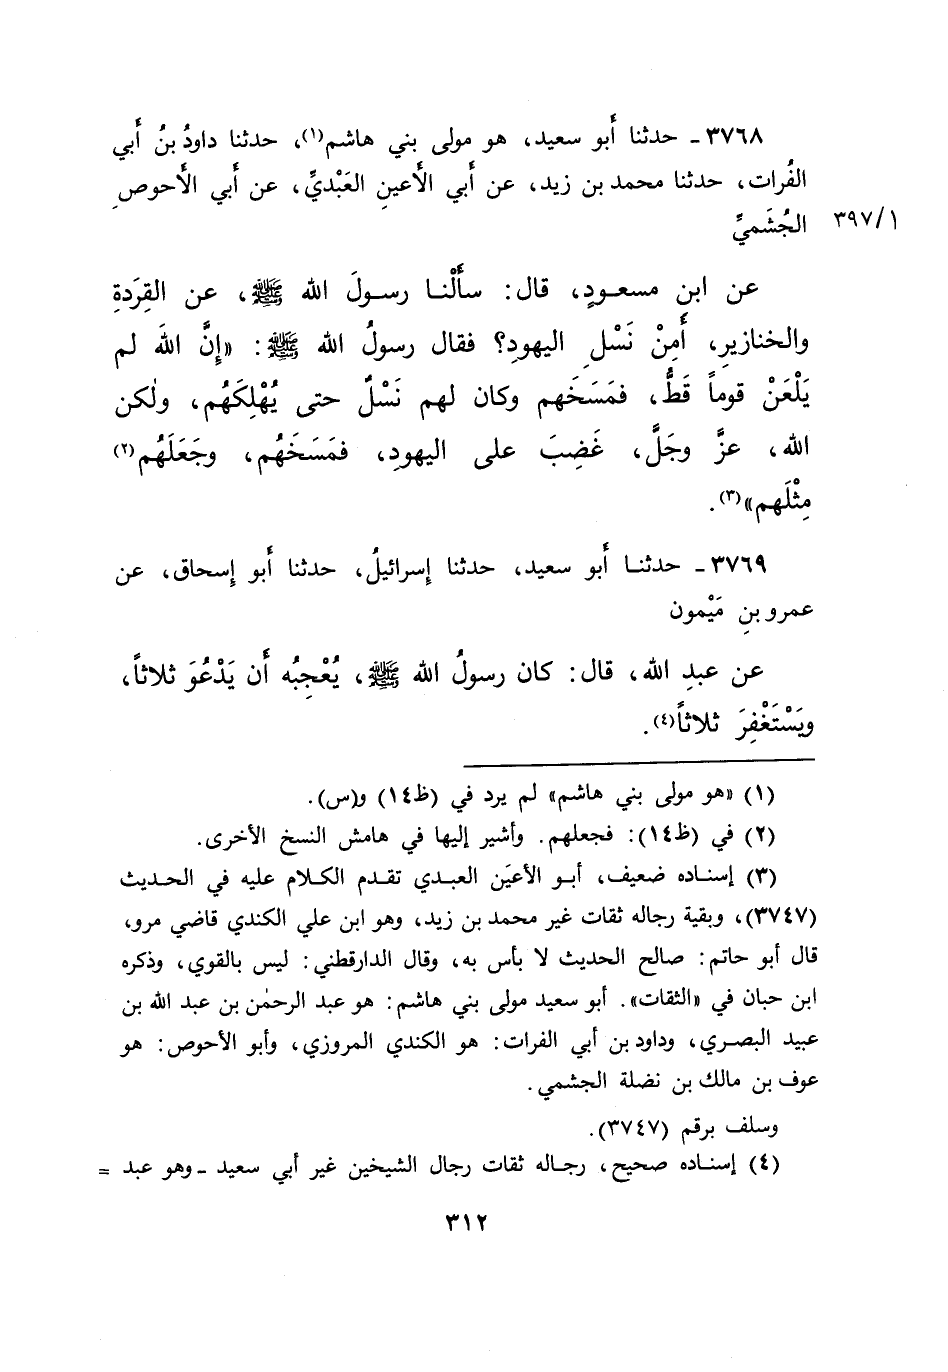 ٣٧٦٨ ـ حدثنا أَبو سعيد، هو مولى بني هاشم(١)، حدثنا داودُ بنُ أَبي
الفُرات، حدثنا محمد بن زيد، عن أَبي الأَعينِ العَبْديِّ، عن أَبي الأَحوصِ
الجُشَميِّ
٣٩٧/١
عن ابنِ مسعودٍ، قال: سأَلْنا رسولَ الله ﷺ، عن القِرَدةِ
والخنازيرِ، أَمِنْ نَسْلِ اليهودِ؟ فقال رسولُ الله ﷺ: «إِنَّ اللهَ لم
يَلْعَنْ قوماً قَطُّ، فمَسَخَهم وكان لهم نَسْلٌ حتى يُهْلِكَهُم، ولٰكن
الله، عزَّ وجَلَّ، غَضِبَ على اليهودِ، فمَسَخَهُم، وجَعَلَهُم(٢)
مِثْلَهم»(٣).
٣٧٦٩ ـ حدثنا أَبو سعيد، حدثنا إِسرائيلُ، حدثنا أَبو إِسحاق، عن
عمرو بنِ مَيْمون
عن عبدِ الله، قال: كان رسولُ الله ﷺ، يُعْجِبُه أَن يَدْعُوَ ثلاثاً،
ويَسْتَغْفِرَ ثلاثاً(٤).
(١) «هو مولى بني هاشم» لم يرد في (ظ١٤) و(س).
(٢) في (ظ١٤): فجعلهم. وأشير إليها في هامش النسخ الأخرى.
(٣) إسناده ضعيف، أبو الأعيَن العبدي تقدم الكلام عليه في الحديث
(٣٧٤٧)، وبقية رجاله ثقات غير محمد بن زيد، وهو ابن علي الكندي قاضي مرو،
قال أبو حاتم: صالح الحديث لا بأس به، وقال الدارقطني: ليس بالقوي، وذكره
ابن حبان في «الثقات». أبو سعيد مولى بني هاشم: هو عبد الرحمٰن بن عبد الله بن
عبيد البصري، وداود بن أبي الفرات: هو الكندي المروزي، وأبو الأحوص: هو
عوف بن مالك بن نضلة الجشمي.
وسلف برقم (٣٧٤٧).
(٤) إسناده صحيح، رجاله ثقات رجال الشيخين غير أبي سعيد ـ وهو عبد =
٣١٢